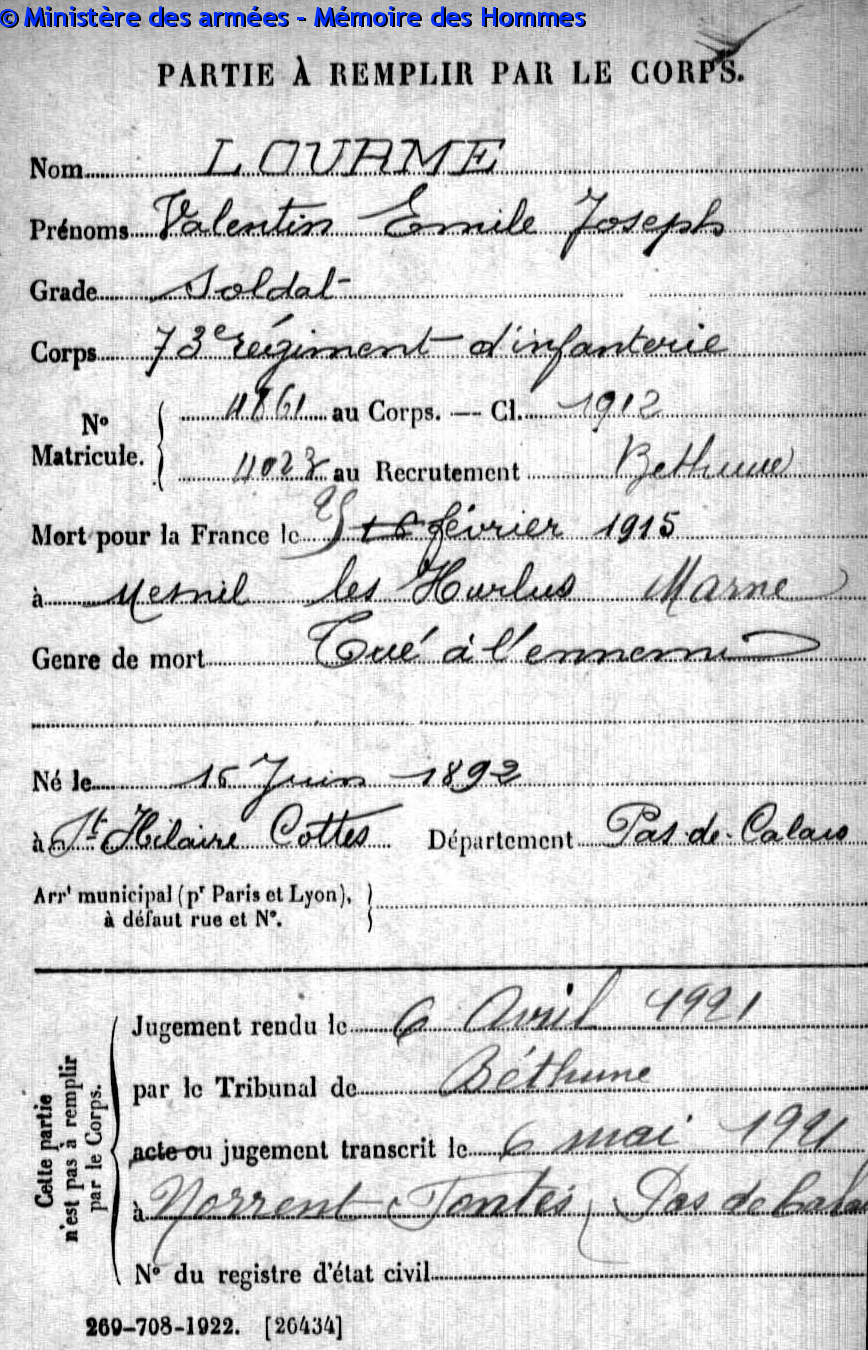 © Ministère des armées - Mémoire des Hommes
PARTIE À REMPLIR PAR LE CORPS.
Nom LOUAME
Prénoms Valentin Emile Joseph
Grade Soldat
Corps 73e régiment d'infanterie
N° Matricule. 4861 au Corps. — Cl. 1912
au Recrutement Bethune
Mort pour la France le 25 16 février 1915
à Mesnil les Hurlus Marne
Genre de mort Tué à l'ennemi
Né le 15 Juin 1892
à St Hilaire Cottes Département Pas-de-Calais
Arrt municipal (pr Paris et Lyon),
à défaut rue et N°.
Cette partie
n'est pas à remplir
par le Corps.
Jugement rendu le 6 Avril 1921
par le Tribunal de Béthune
acte ou jugement transcrit le 6 mai 1921
à Norrent Fontes Pas de Calais
N° du registre d'état civil
269-708-1922. [26434]